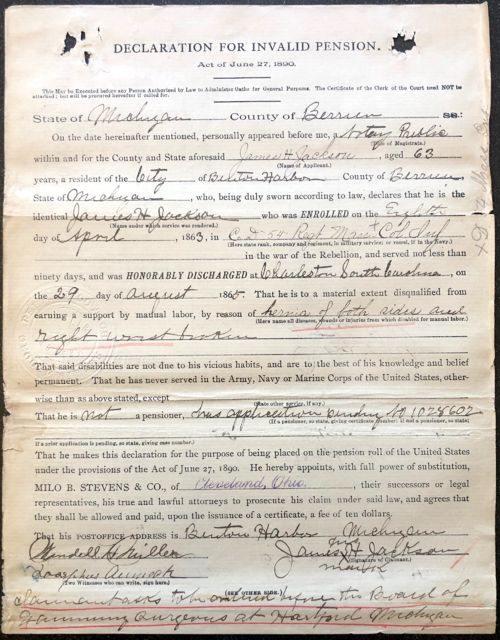 DECLARATION FOR INVALID PENSION.
Act of June 27, 1890.
This May be Executed before any Person Authorized by Law to Administer Oaths for General Purposes. The Certificate of the Clerk of the Court need NOT be
attached; but will be procured hereafter if called for.
State of Michigan County of Berrien ss.:
On the date hereinafter mentioned, personally appeared before me, a Notary Public
(Title of Magistrate.)
within and for the County and State aforesaid James H Jackson, aged 63
(Name of Applicant.)
years, a resident of the City of Benton Harbor County of Berrien,
State of Michigan, who, being duly sworn according to law, declares that he is the
identical James H Jackson who was ENROLLED on the Eighth
(Name under which service was rendered.)
day of April, 1863, in Co D 54 Regt Masst Cold Inf
(Here state rank, company and regiment, in military service; or vessel, if in the Navy.)
in the war of the Rebellion, and served not less than
ninety days, and was HONORABLY DISCHARGED at Charleston South Carolina, on
the 29 day of August 1865. That he is to a material extent disqualified from
earning a support by manual labor, by reason of hernia of both sides and
(Here name all diseases, wounds or injuries from which disabled for manual labor.)
right wrist broken
That said disabilities are not due to his vicious habits, and are to the best of his knowledge and belief
permanent. That he has never served in the Army, Navy or Marine Corps of the United States, other-
wise than as above stated, except
(State other service, if any.)
That he is not a pensioner, has application pending No 1028602
(If a pensioner, so state, giving certificate number; if not a pensioner, so state;
if a prior application is pending, so state, giving case number.)
That he makes this declaration for the purpose of being placed on the pension roll of the United
States under the provisions of the Act of June 27, 1890. He hereby appoints, with full power of substitution,
MILO B. STEVENS & CO., of Cleveland, Ohio, their successors or legal
representatives, his true and lawful attorneys to prosecute his claim under said law, and agrees that
they shall be allowed and paid, upon the issuance of a certificate, a fee of ten dollars.
That his POSTOFFICE ADDRESS is Benton Harbor Michigan
Wendell H Miller James H Jackson
(Signature of Claimant.)
mark
(Two Witnesses who can write, sign here.)
(SEE OTHER SIDE.)
Claimant asks to be ordered before the Board of
Examining Surgeons at Hartford Michigan